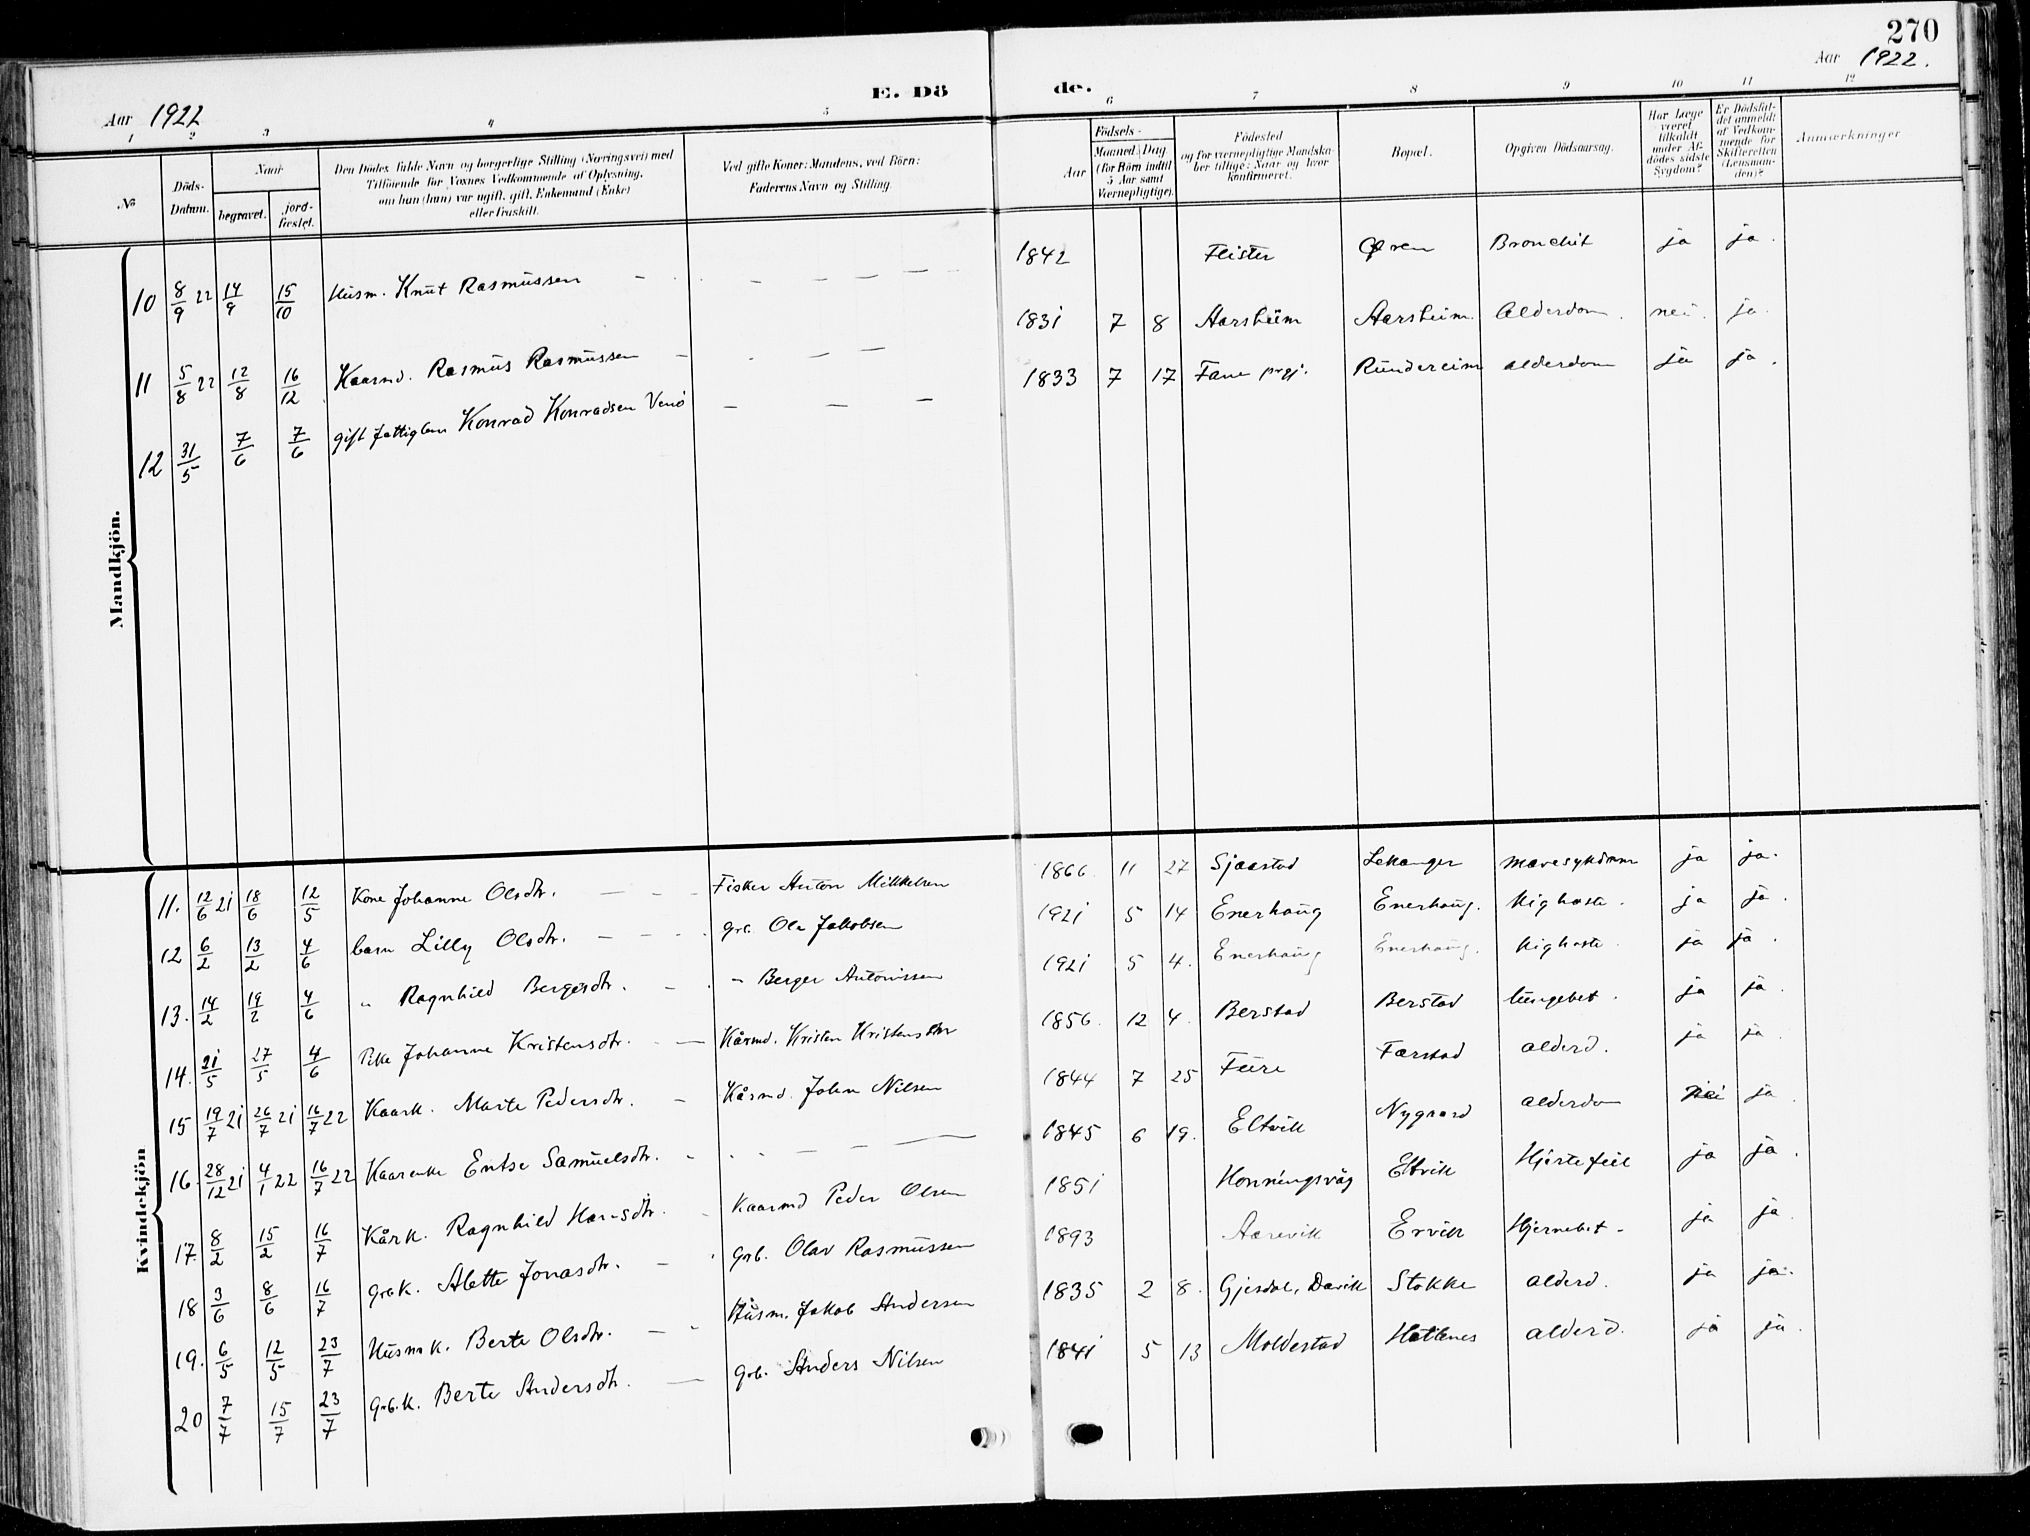 270
Aar 1922.
E. Dö de.
Aar 1922
1 2 3 4 5 6 7 8 9 10 11 12
No
Döds-Datum.
Naar
begravet.
jord-fæstet.
Den Dödes fulde Navn og borgerlige Stilling (Næringsvei) med
Tilföiende for Voxnes Vedkommende af Oplysning,
om han (hun) var ugift, gift, Enkemand (Enke)
eller fraskilt.
Ved gifte Koner: Mandens, ved Börn:
Faderens Navn og Stilling.
Födsels-
Aar
Maaned. Dag
(for Börn indtil
5 Aar samt
Værnepligtige).
Födested
og for værnepligtige Mandska-
ber tillige: Naar og hvor
konfirmeret.
Bopæl.
Opgiven Dödsaarsag.
Har Læge
været
tilkaldt
under Af-
dödes sidste
Sygdom?
Er Dödsfal-
det anmeldt
af Vedkom-
mende for
Skifteretten
(Lensman-
den)?
Anmærkninger
Mandkjön.
10 8/9 22 14/9 15/10 Husm. Knut Rasmussen 1842 Flister Øren Bronchit ja ja.
11 5/8 22 12/8 16/12 Kaarmd. Rasmus Rasmussen 1831 7 8 Aarsheim Aarsheim Alderdom. nei. ja.
12 31/5 7/6 7/6 gift fattiglem Konrad Konradsen 1833 7 17 Fane prgj. Rundereim alderdom ja ja.
Kvindekjön
11. 12/6 21 18/6 12/5 Kone Johanne Olsdtr. Fisker Anton Mikkelsen 1866. 11 27 Sjaastad Lekanger mavesykdom ja ja.
12 6/2 13/2 4/6 barn Lilly Olsdtr. grb. Ole Jakobsen 1921 5 14 Enerhaug Enerhaug. kighoste. ja ja.
13. 14/2 19/2 4/6 " Ragnhild Bergesdtr. " Berger Antonissen 1921 5 4. Enerhaug Enerhaug. kighoste. ja ja.
14. 21/5 27/5 4/6 Pike Johanne Kristensdtr. Kårmd. Kristen Kristensen 1856. 12 4. Berstad Berstad lungebet. ja ja.
15 19/7 21 26/7 21 16/7 22 Kaark. Marte Pedersdtr. Kårmd. John Nilsen 1844 7 25 Fure Færstad alderd. ja ja.
16. 28/12 21 4/1 22 16/7 22 Kaarenke Entse Samuelsdtr. 1845 6 19. Eltvik Nygaard alderdom nei ja.
17. 8/2 15/2 16/7 Kårk. Ragnhild Hansdtr. Kaarmd Peder Olsen 1851 Honningsvåg Eltvik Hjertefeil ja ja.
18 3/6 8/6 16/7 grbK. Alette Jonasdtr. grb. Olav Rasmussen 1893 Aarevik Ervik Hjernebet. ja ja
19. 6/5 12/5 23/7 Husmk. Berte Olsdtr. Husm. Jakob Andersen 1835 2 8. Gjesdal, Davik Stokke alderd. ja ja.
20 7/7 15/7 23/7 Grb.K. Berte Andersdtr. grb. Anders Nilsen 1841 5 13 Moldestad Hatlenes alderd. ja ja.